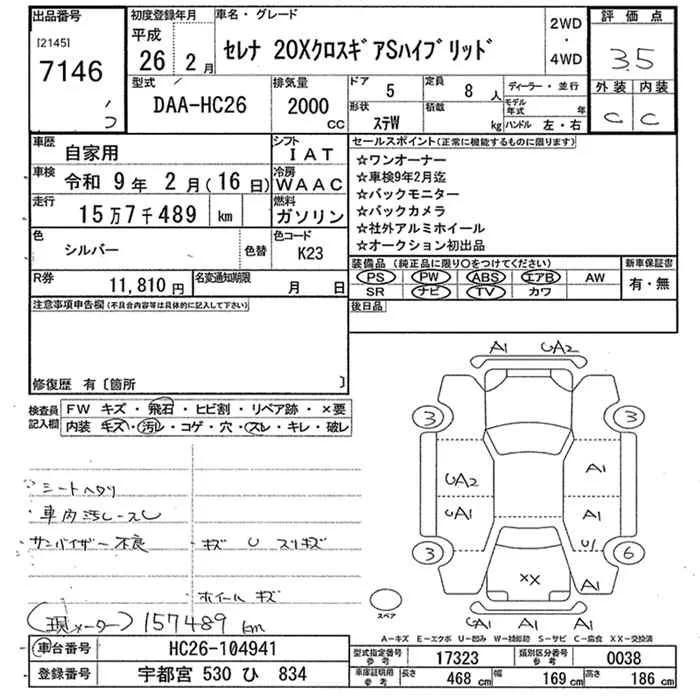 出品番号
[2145]
7146
初度登録年月
平成
26年 2月
車名・グレード
セレナ 20XクロスギアSハイブリッド
2WD
・
4WD
評価点
3.5
外装 内装
C C
型式
DAA-HC26
排気量
2000
CC
ドア 5
定員 8人
形状 ステW
積載 kg
ディーラー・並行
モデル年式 年
ハンドル 左・右
車歴 自家用
シフト IAT
車検 令和 9年 2月(16日)
冷房 WAAC
走行 15万7千489 km
燃料 ガソリン
色 シルバー
色替
色コード K23
R券 11,810円
名変通知期限 月 日
セールスポイント(正常に機能するものに限ります)
☆ワンオーナー
☆車検9年2月迄
☆バックモニター
☆バックカメラ
☆社外アルミホイール
☆オークション初出品
装備品 (純正品に限り○をつけてください)
PS PW ABS エアB AW
SR ナビ TV カワ
新車保証書
有・無
後日品
注意事項申告欄(不具合内容等は具体的に記入して下さい)
修復歴 有〔箇所 〕
検査員記入欄
FW キズ・飛石・ヒビ割・リペア跡・×要
内装 キズ・汚レ・コゲ・穴・スレ・キレ・破レ
シートヘタリ
車内汚レースレ
サンバイザー不良
キズ U スリキズ
ホイールキズ
(現メーター) 157489 km
A1 UA2
3 3
UA2 A1
UA1 A1
U1
3 6
XX A1
UA1 A1
スペア
A－キズ E－エクボ U－凹み W－補修跡 S－サビ C－腐食 XX－交換済
車台番号 HC26-104941
登録番号 宇都宮 530 ひ 834
型式指定番号 参考 17323
類別区分番号 参考 0038
車庫証明用 参考 長さ 468 cm 幅 169 cm 高さ 186 cm